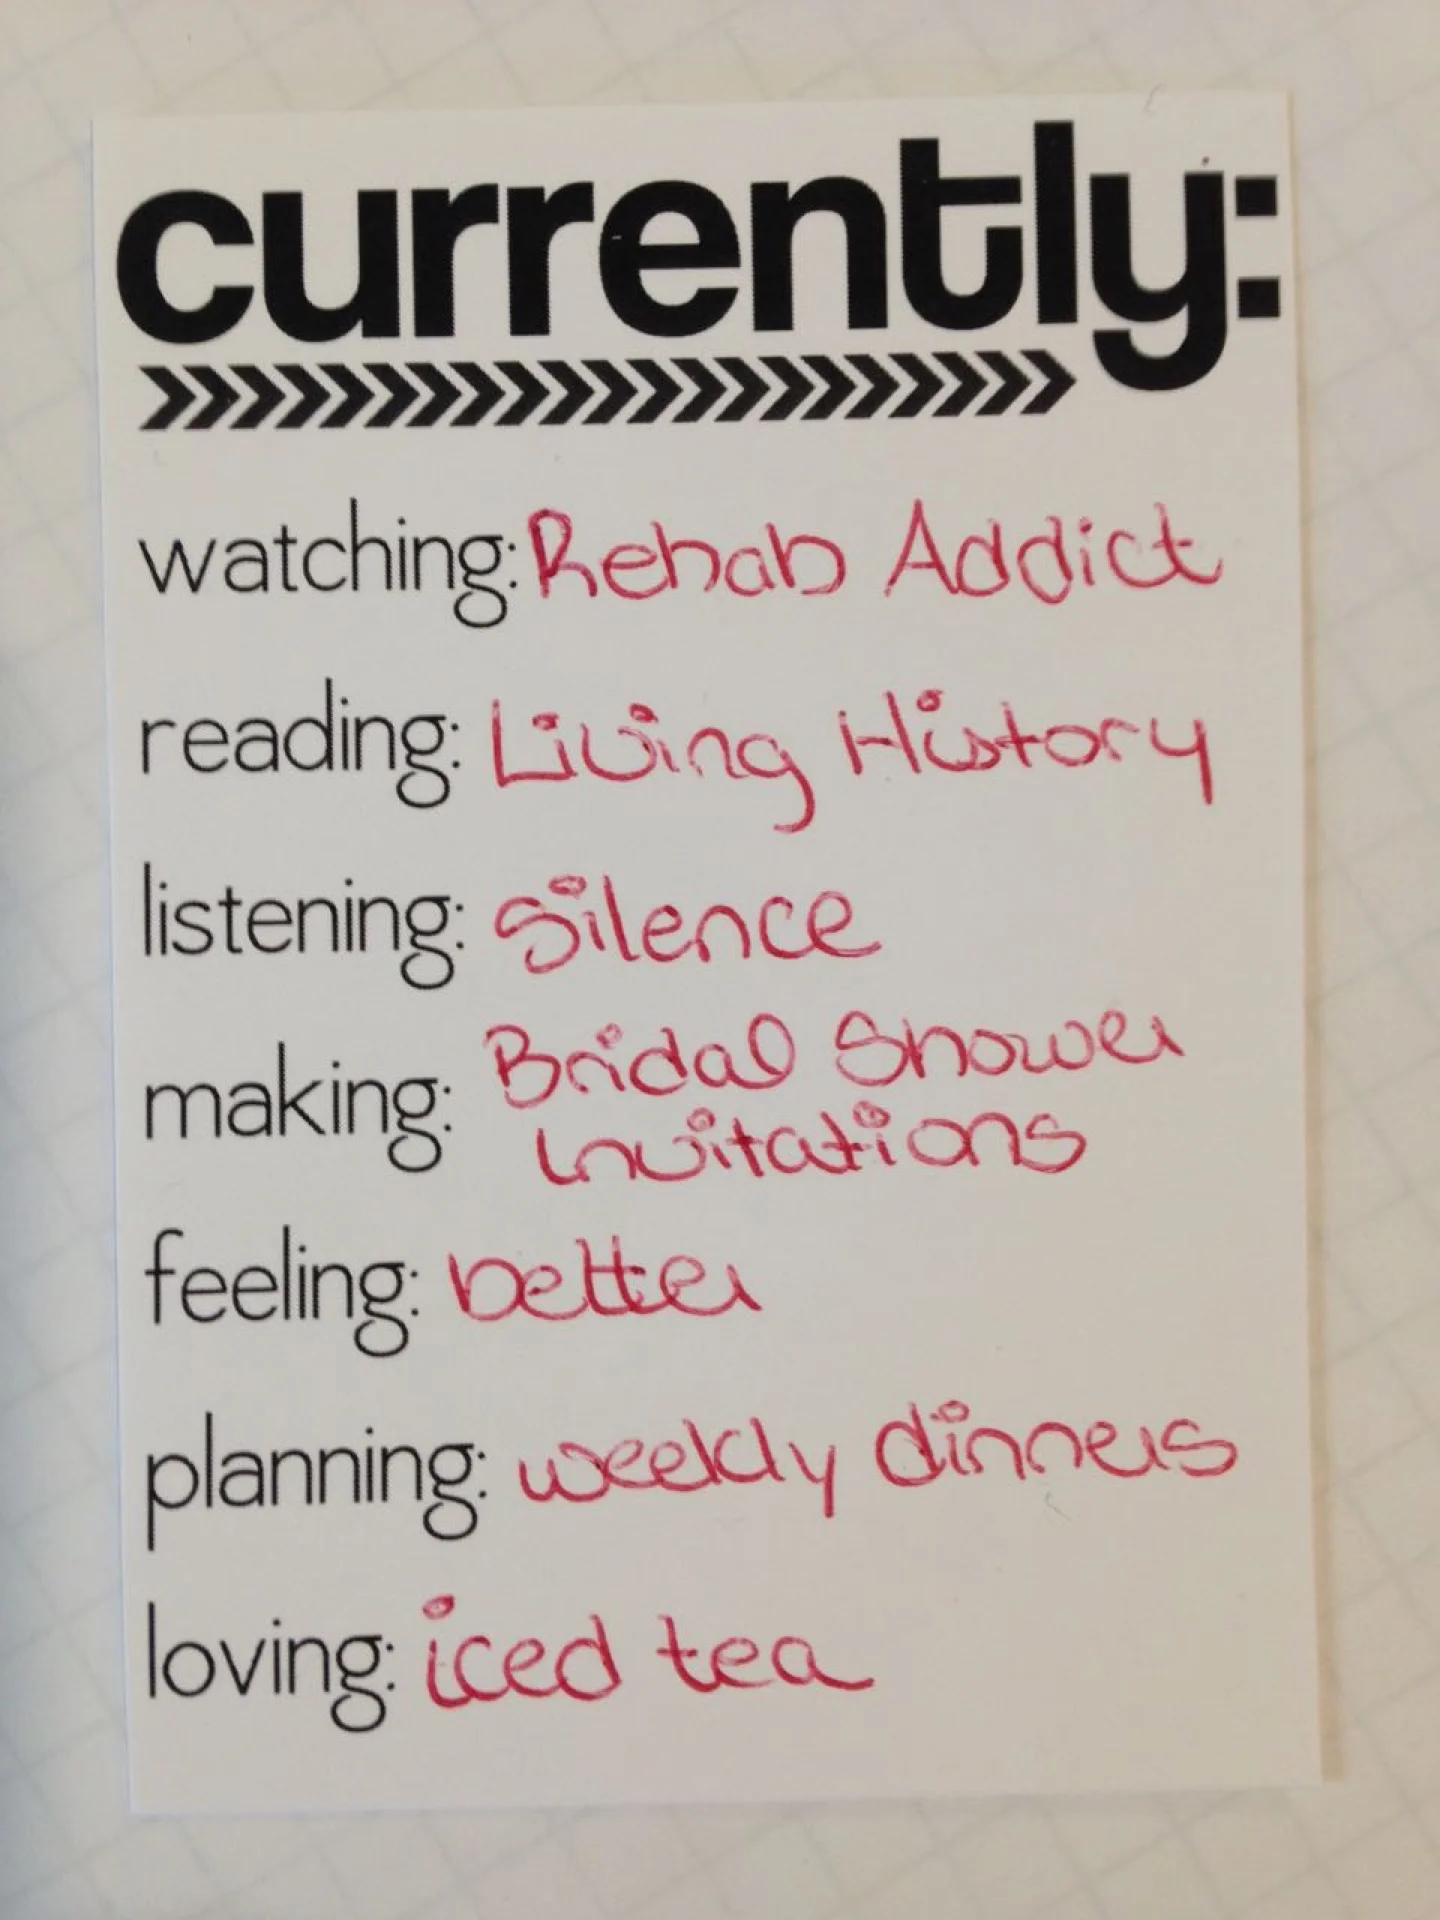 currently:
watching: Rehab Addict
reading: Living History
listening: Silence
making: Bridal Shower
Invitations
feeling: better
planning: weekly dinners
loving: iced tea